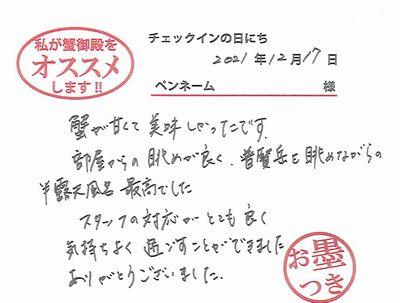 私が蟹御殿を
オススメ
します!!
チェックインの日にち
2021年12月17日
ペンネーム 様
蟹が甘くて美味しかったです。
部屋からの眺めが良く、普賢岳を眺めながらの
半露天風呂最高でした
スタッフの対応がとても良く
気持ちよく過ごすことができました
ありがとうございました。
お墨
つき